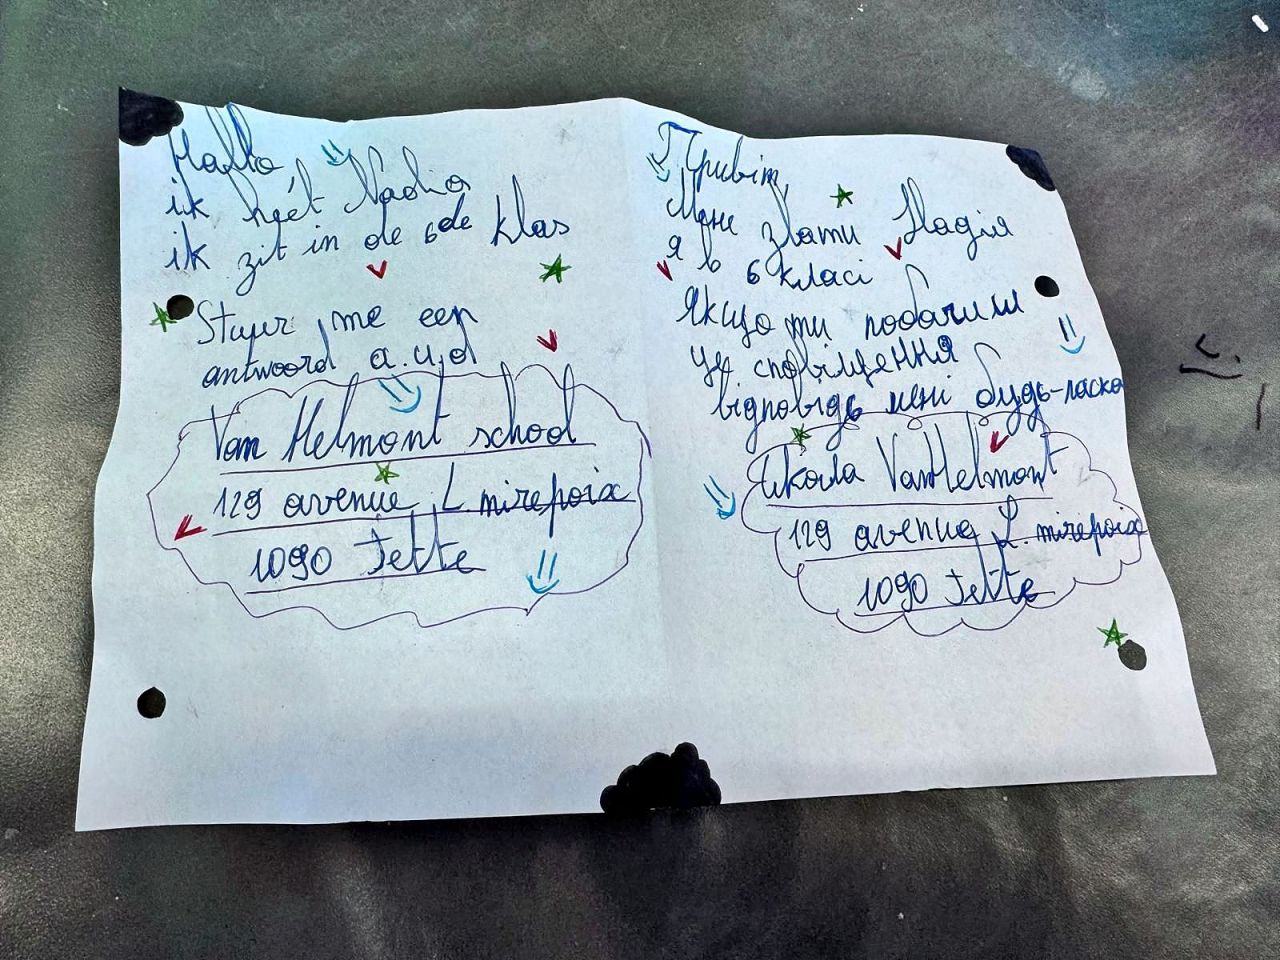 Hallo,
ik heet Nadia
ik zit in de 6de klas
Stuur me een
antwoord a.u.d
Van Helmont school
129 avenue L mirepoix
1090 Jette
Привіт,
Мене звати Надія
я в 6 класі
Якщо ти побачиш
це сповіщення
відповідь мені будь-ласка
Школа VanHelmont
129 avenue L. mirepoix
1090 Jette